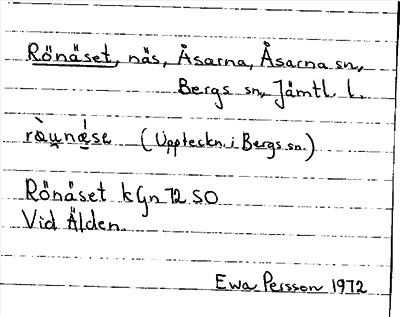 Rönäset, näs, Åsarna, Åsarna sn,
Bergs sn, Jämtl. l.
(Uppteckn. i Bergs sn.)
Rönäset kGn 72 SO
Vid Älden.
Ewa Persson 1972